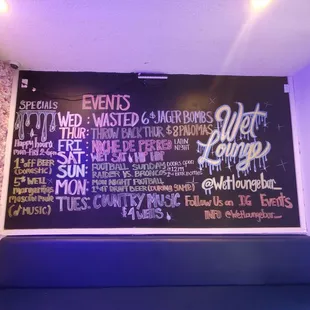 SPECIALS
Happy hour
Mon-Fri 2-6pm
1$ off BEER
(DOMESTIC)
5$ WELL
margaritas
Moscow mule
(♪ MUSIC)
EVENTS
WED: WASTED 6$ JAGER BOMBS
THUR: THROW BACK THUR $8 PALOMAS
FRI: NOCHE DE PERREO LATIN
SAT: HIP HOP
SUN: FOOTBALL SUNDAY DOORS OPEN
RAIDER VS. BRONCOS
MON: MON NIGHT FOOTBALL
1$ off DRAFT BEER
TUES: COUNTRY MUSIC
$4
Wet
Lounge
@WetLoungebar_
Follow Us on IG Events
INFO @WetLoungebar_